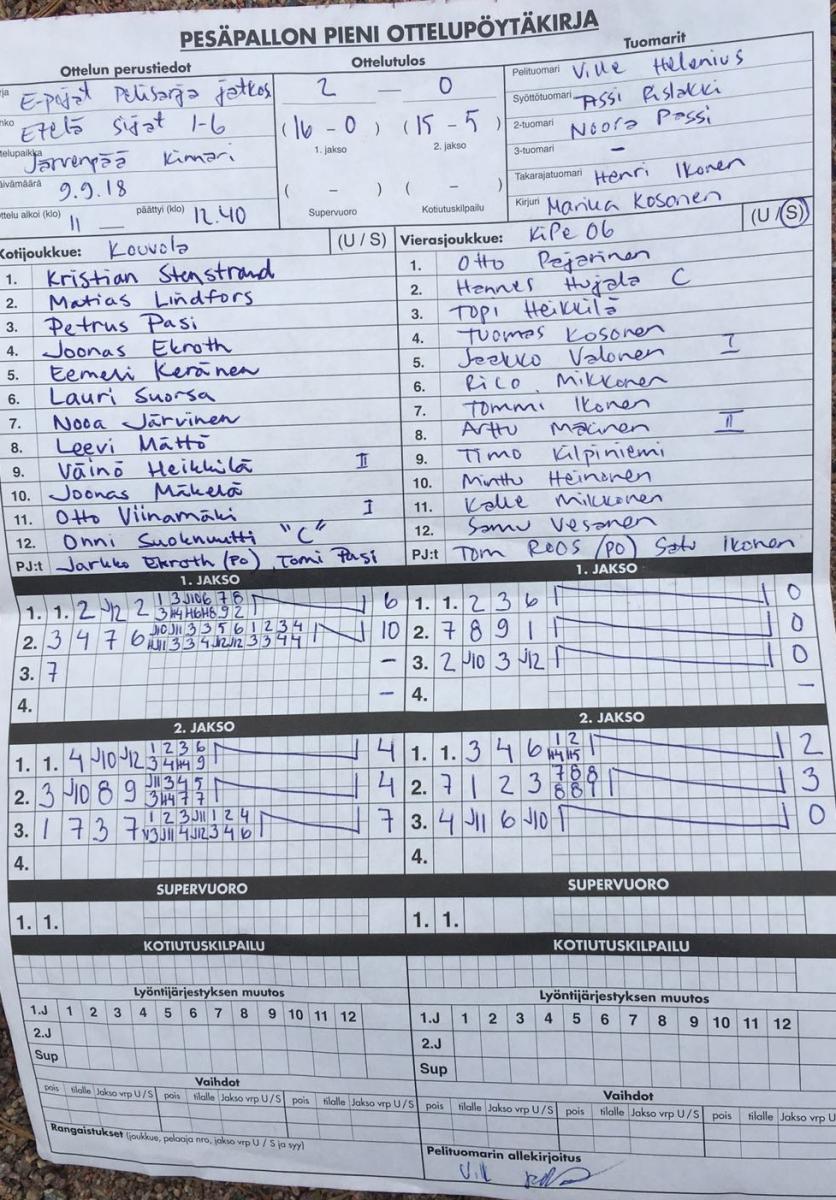 PESÄPALLON PIENI OTTELUPÖYTÄKIRJA
Ottelun perustiedot
E-pojat Pelisarja jatkos
Etelä sijat 1-6
Järvenpää Kinnari
9.9.18
ottelu alkoi (klo) 11 päättyi (klo) 12.40
Ottelutulos
2 — 0
(16 - 0) (15 - 5)
1. jakso 2. jakso
( - ) ( - )
Supervuoro Kotiutuskilpailu
Tuomarit
Pelituomari Ville Helenius
Syöttötuomari Assi Rislakki
2-tuomari Noora Passi
3-tuomari –
Takarajatuomari Henri Ikonen
Kirjuri Marika Kosonen
Kotijoukkue: Kouvola (U / S)
1. Kristian Stenstrand
2. Matias Lindfors
3. Petrus Pasi
4. Joonas Ekroth
5. Eemeli Keränen
6. Lauri Suorsa
7. Nooa Järvinen
8. Leevi Mättö
9. Väinö Heikkilä II
10. Joonas Mäkelä
11. Otto Viinamäki I
12. Onni Suoknuutti "C"
PJ:t Jarkko Ekroth (PO), Tomi Pasi
Vierasjoukkue: KiPe 06 (U / S)
1. Otto Pajarinen
2. Hannes Hujala C
3. Topi Heikkilä
4. Tuomas Kosonen
5. Jaakko Valonen I
6. Rico Mikkonen
7. Tommi Ikonen
8. Arttu Mäkinen II
9. Timo Kilpiniemi
10. Minttu Heinonen
11. Kalle Mikkonen
12. Samu Vesanen
PJ:t Tom Roos (PO) Satu Ikonen
1. JAKSO
1. 1. 2 J12 2 6
2. 3 4 7 6 10
3. 7 –
4. –
1. JAKSO
1. 1. 2 3 6 0
2. 7 8 9 1 0
3. 2 J10 3 J12 0
4. –
2. JAKSO
1. 1. 4 J10 J12 4
2. 3 J10 8 9 4
3. 1 7 3 7 7
4.
2. JAKSO
1. 1. 3 4 6 2
2. 7 1 2 3 3
3. 4 J11 6 J10 0
4.
SUPERVUORO
1. 1.
SUPERVUORO
1. 1.
KOTIUTUSKILPAILU
KOTIUTUSKILPAILU
Lyöntijärjestyksen muutos
1.J 1 2 3 4 5 6 7 8 9 10 11 12
2.J
Sup
Lyöntijärjestyksen muutos
1.J 1 2 3 4 5 6 7 8 9 10 11 12
2.J
Sup
Vaihdot
pois tilalle Jakso vrp U / S pois tilalle Jakso vrp U / S pois tilalle Jakso vrp U / S
Vaihdot
pois tilalle Jakso vrp U / S pois tilalle Jakso vrp U / S pois tilalle Jakso vrp U
Rangaistukset (joukkue, pelaaja nro, jakso vrp U / S ja syy)
Pelituomarin allekirjoitus